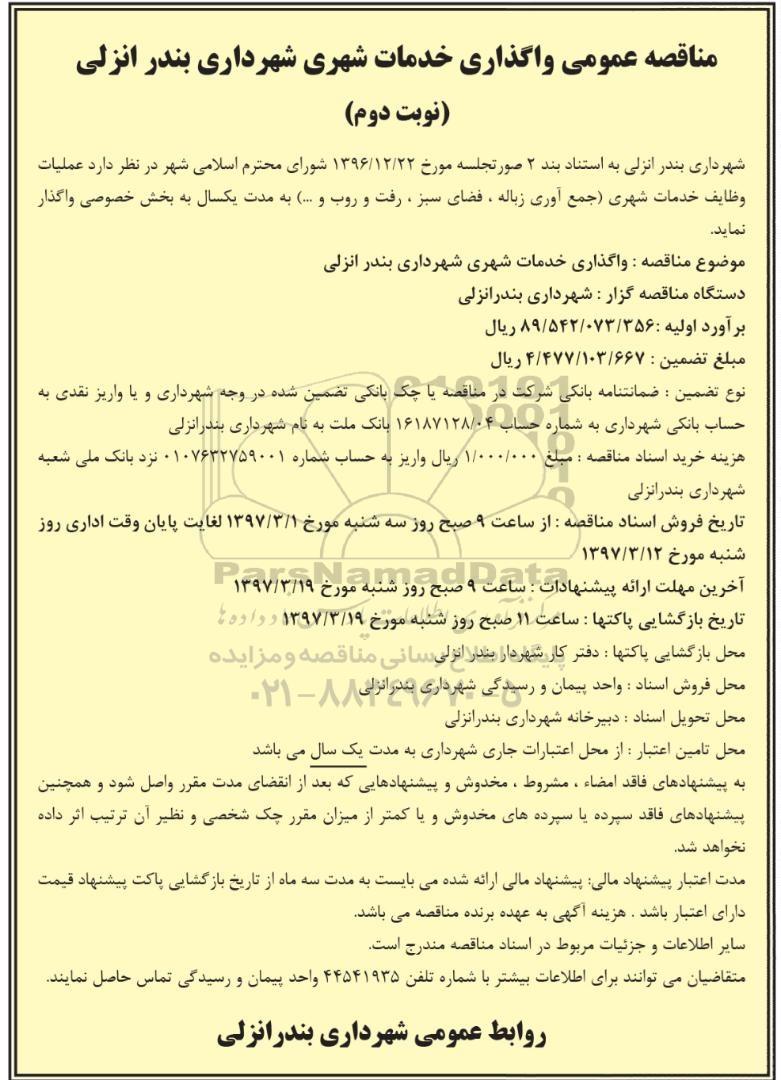 مناقصه عمومی واگذاری خدمات شهری شهرداری بندر انزلی
(نوبت دوم)
شهرداری بندر انزلی به استناد بند ۲ صورتجلسه مورخ ۱۳۹۶/۱۲/۲۲ شورای محترم اسلامی شهر در نظر دارد عملیات
وظایف خدمات شهری (جمع آوری زباله ، فضای سبز ، رفت و روب و ...) به مدت یکسال به بخش خصوصی واگذار
نماید.
موضوع مناقصه : واگذاری خدمات شهری شهرداری بندر انزلی
دستگاه مناقصه گزار : شهرداری بندرانزلی
برآورد اولیه :۸۹/۵۴۲/۰۷۳/۳۵۶ ریال
مبلغ تضمین : ۴/۴۷۷/۱۰۳/۶۶۷ ریال
نوع تضمین : ضمانتنامه بانکی شرکت در مناقصه یا چک بانکی تضمین شده در وجه شهرداری و یا واریز نقدی به
حساب بانکی شهرداری به شماره حساب ۱۶۱۸۷۱۲۸/۰۴ بانک ملت به نام شهرداری بندرانزلی
هزینه خرید اسناد مناقصه : مبلغ ۱/۰۰۰/۰۰۰ ریال واریز به حساب شماره ۰۱۰۷۶۳۲۷۵۹۰۰۱ نزد بانک ملی شعبه
شهرداری بندرانزلی
تاریخ فروش اسناد مناقصه : از ساعت ۹ صبح روز سه شنبه مورخ ۱۳۹۷/۳/۱ لغایت پایان وقت اداری روز
شنبه مورخ ۱۳۹۷/۳/۱۲
آخرین مهلت ارائه پیشنهادات : ساعت ۹ صبح روز شنبه مورخ ۱۳۹۷/۳/۱۹
تاریخ بازگشایی پاکتها : ساعت ۱۱ صبح روز شنبه مورخ ۱۳۹۷/۳/۱۹
محل بازگشایی پاکتها : دفتر کار شهردار بندر انزلی
محل فروش اسناد : واحد پیمان و رسیدگی شهرداری بندرانزلی
محل تحویل اسناد : دبیرخانه شهرداری بندرانزلی
محل تامین اعتبار : از محل اعتبارات جاری شهرداری به مدت یک سال می باشد
به پیشنهادهای فاقد امضاء ، مشروط ، مخدوش و پیشنهادهایی که بعد از انقضای مدت مقرر واصل شود و همچنین
پیشنهادهای فاقد سپرده یا سپرده های مخدوش و یا کمتر از میزان مقرر چک شخصی و نظیر آن ترتیب اثر داده
نخواهد شد.
مدت اعتبار پیشنهاد مالی: پیشنهاد مالی ارائه شده می بایست به مدت سه ماه از تاریخ بازگشایی پاکت پیشنهاد قیمت
دارای اعتبار باشد . هزینه آگهی به عهده برنده مناقصه می باشد.
سایر اطلاعات و جزئیات مربوط در اسناد مناقصه مندرج است.
متقاضیان می توانند برای اطلاعات بیشتر با شماره تلفن ۴۴۵۴۱۹۳۵ واحد پیمان و رسیدگی تماس حاصل نمایند.
روابط عمومی شهرداری بندرانزلی
ParsNamadData
پایگاه اطلاع رسانی مناقصه و مزایده
۰۲۱-۸۸۳۴۹۶۷۰-۵